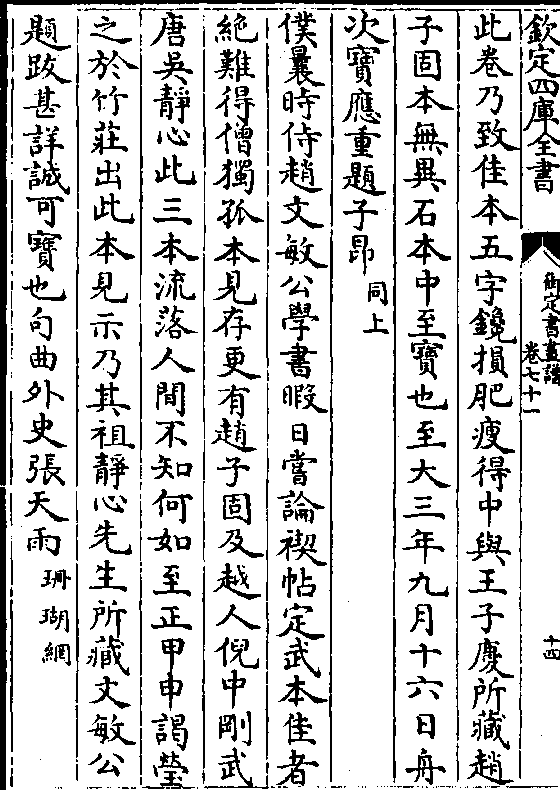 欽定四庫全書
御定書畫譜
卷七十一
十四
此卷乃致佳本五字鑱損肥瘦得中與王子慶所藏趙
子固本無異石本中至寶也至大三年九月十六日舟
次寶應重題子昂同上
僕曩時侍趙文敏公學書暇日嘗論禊帖定武本佳者
絶難得僧獨孤本見存更有趙子固及越人倪中剛武
唐吳靜心此三本流落人間不知何如至正甲申謁瑩
之於竹莊出此本見示乃其祖靜心先生所藏文敏公
題跋甚詳誠可寶也句曲外史張天雨珊瑚網